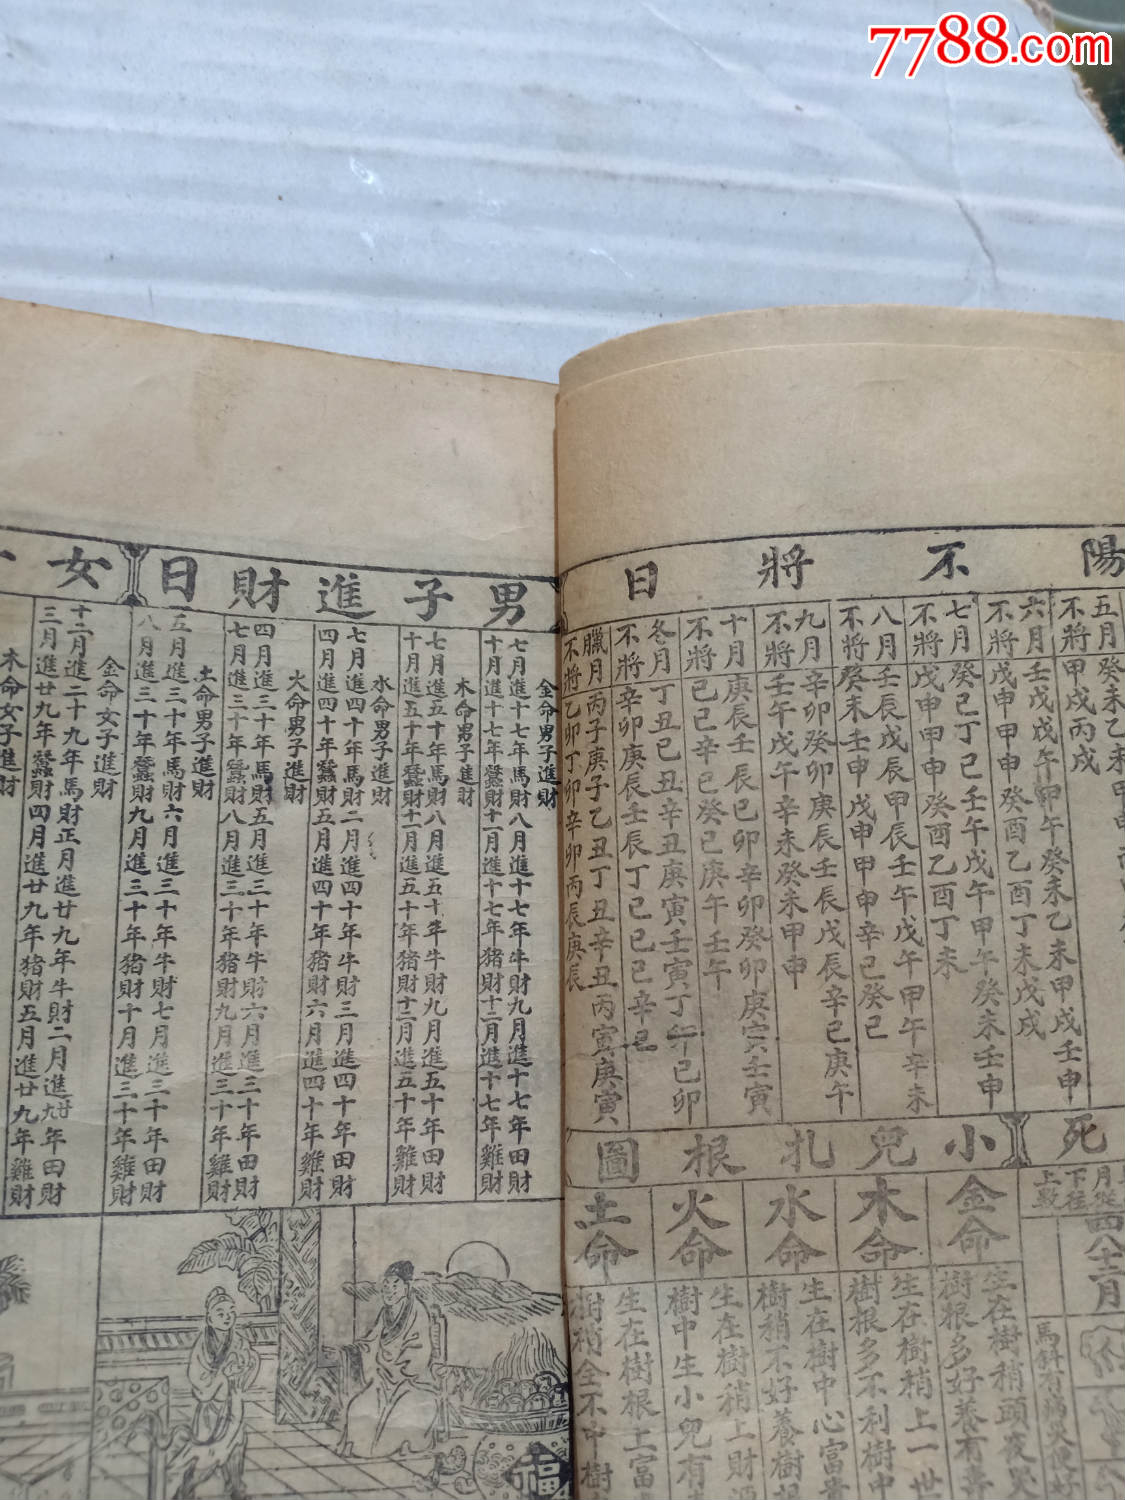 7788.com
陽不將日
五月
不將
癸未乙未甲
甲戌丙戌
六月
不將
壬戌戊午甲午癸未乙未甲戌壬申
戊申甲申癸酉乙酉丁未戊戌
七月
不將
癸巳丁巳壬午戊午甲午癸未壬申
戊申甲申癸酉乙酉丁未
八月
不將
壬辰戊辰甲辰壬午戊午甲午辛未
癸未壬申戊申甲申辛巳癸巳
九月
不將
辛卯癸卯庚辰壬辰戊辰辛巳庚午
壬午戊午辛未癸未甲申
十月
不將
庚辰壬辰己卯辛卯癸卯庚寅壬寅
己巳辛巳癸巳庚午壬午
冬月
不將
丁丑己丑辛丑庚寅壬寅丁卯己卯
辛卯庚辰壬辰丁巳己巳辛巳
臘月
不將
丙子庚子乙丑丁丑辛丑丙寅庚寅
乙卯丁卯辛卯丙辰庚辰
死
月從
下往
上數
四八十二月
小兒扎根圖
金命
生在樹稍頭夜哭
樹根多好養有喜
木命
生在樹稍上一世
樹根多不利樹中
水命
生在樹中心富貴
樹稍不好養樹根
火命
生在樹稍上財源
樹中生小兒有
土命
生在樹根上富
樹稍全不中樹
男子進財日
金命男子進財
七月進十七年馬財八月進十七年牛財九月進十七年田財
十月進十七年蠶財十一月進十七年猪財十二月進十七年雞財
木命男子進財
七月進五十年馬財八月進五十年牛財九月進五十年田財
十月進五十年蠶財十一月進五十年猪財十二月進五十年雞財
水命男子進財
七月進四十年馬財二月進四十年牛財三月進四十年田財
四月進四十年蠶財五月進四十年猪財六月進四十年雞財
火命男子進財
四月進三十年馬財五月進三十年牛財六月進三十年田財
七月進三十年蠶財八月進三十年猪財九月進三十年雞財
土命男子進財
五月進三十年馬財六月進三十年牛財七月進三十年田財
八月進三十年蠶財九月進三十年猪財十月進三十年雞財
女
金命女子進財
十二月進二十九年馬財正月進廿九年牛財二月進廿九年田財
三月進廿九年蠶財四月進廿九年猪財五月進廿九年雞財
木命女子進財
福